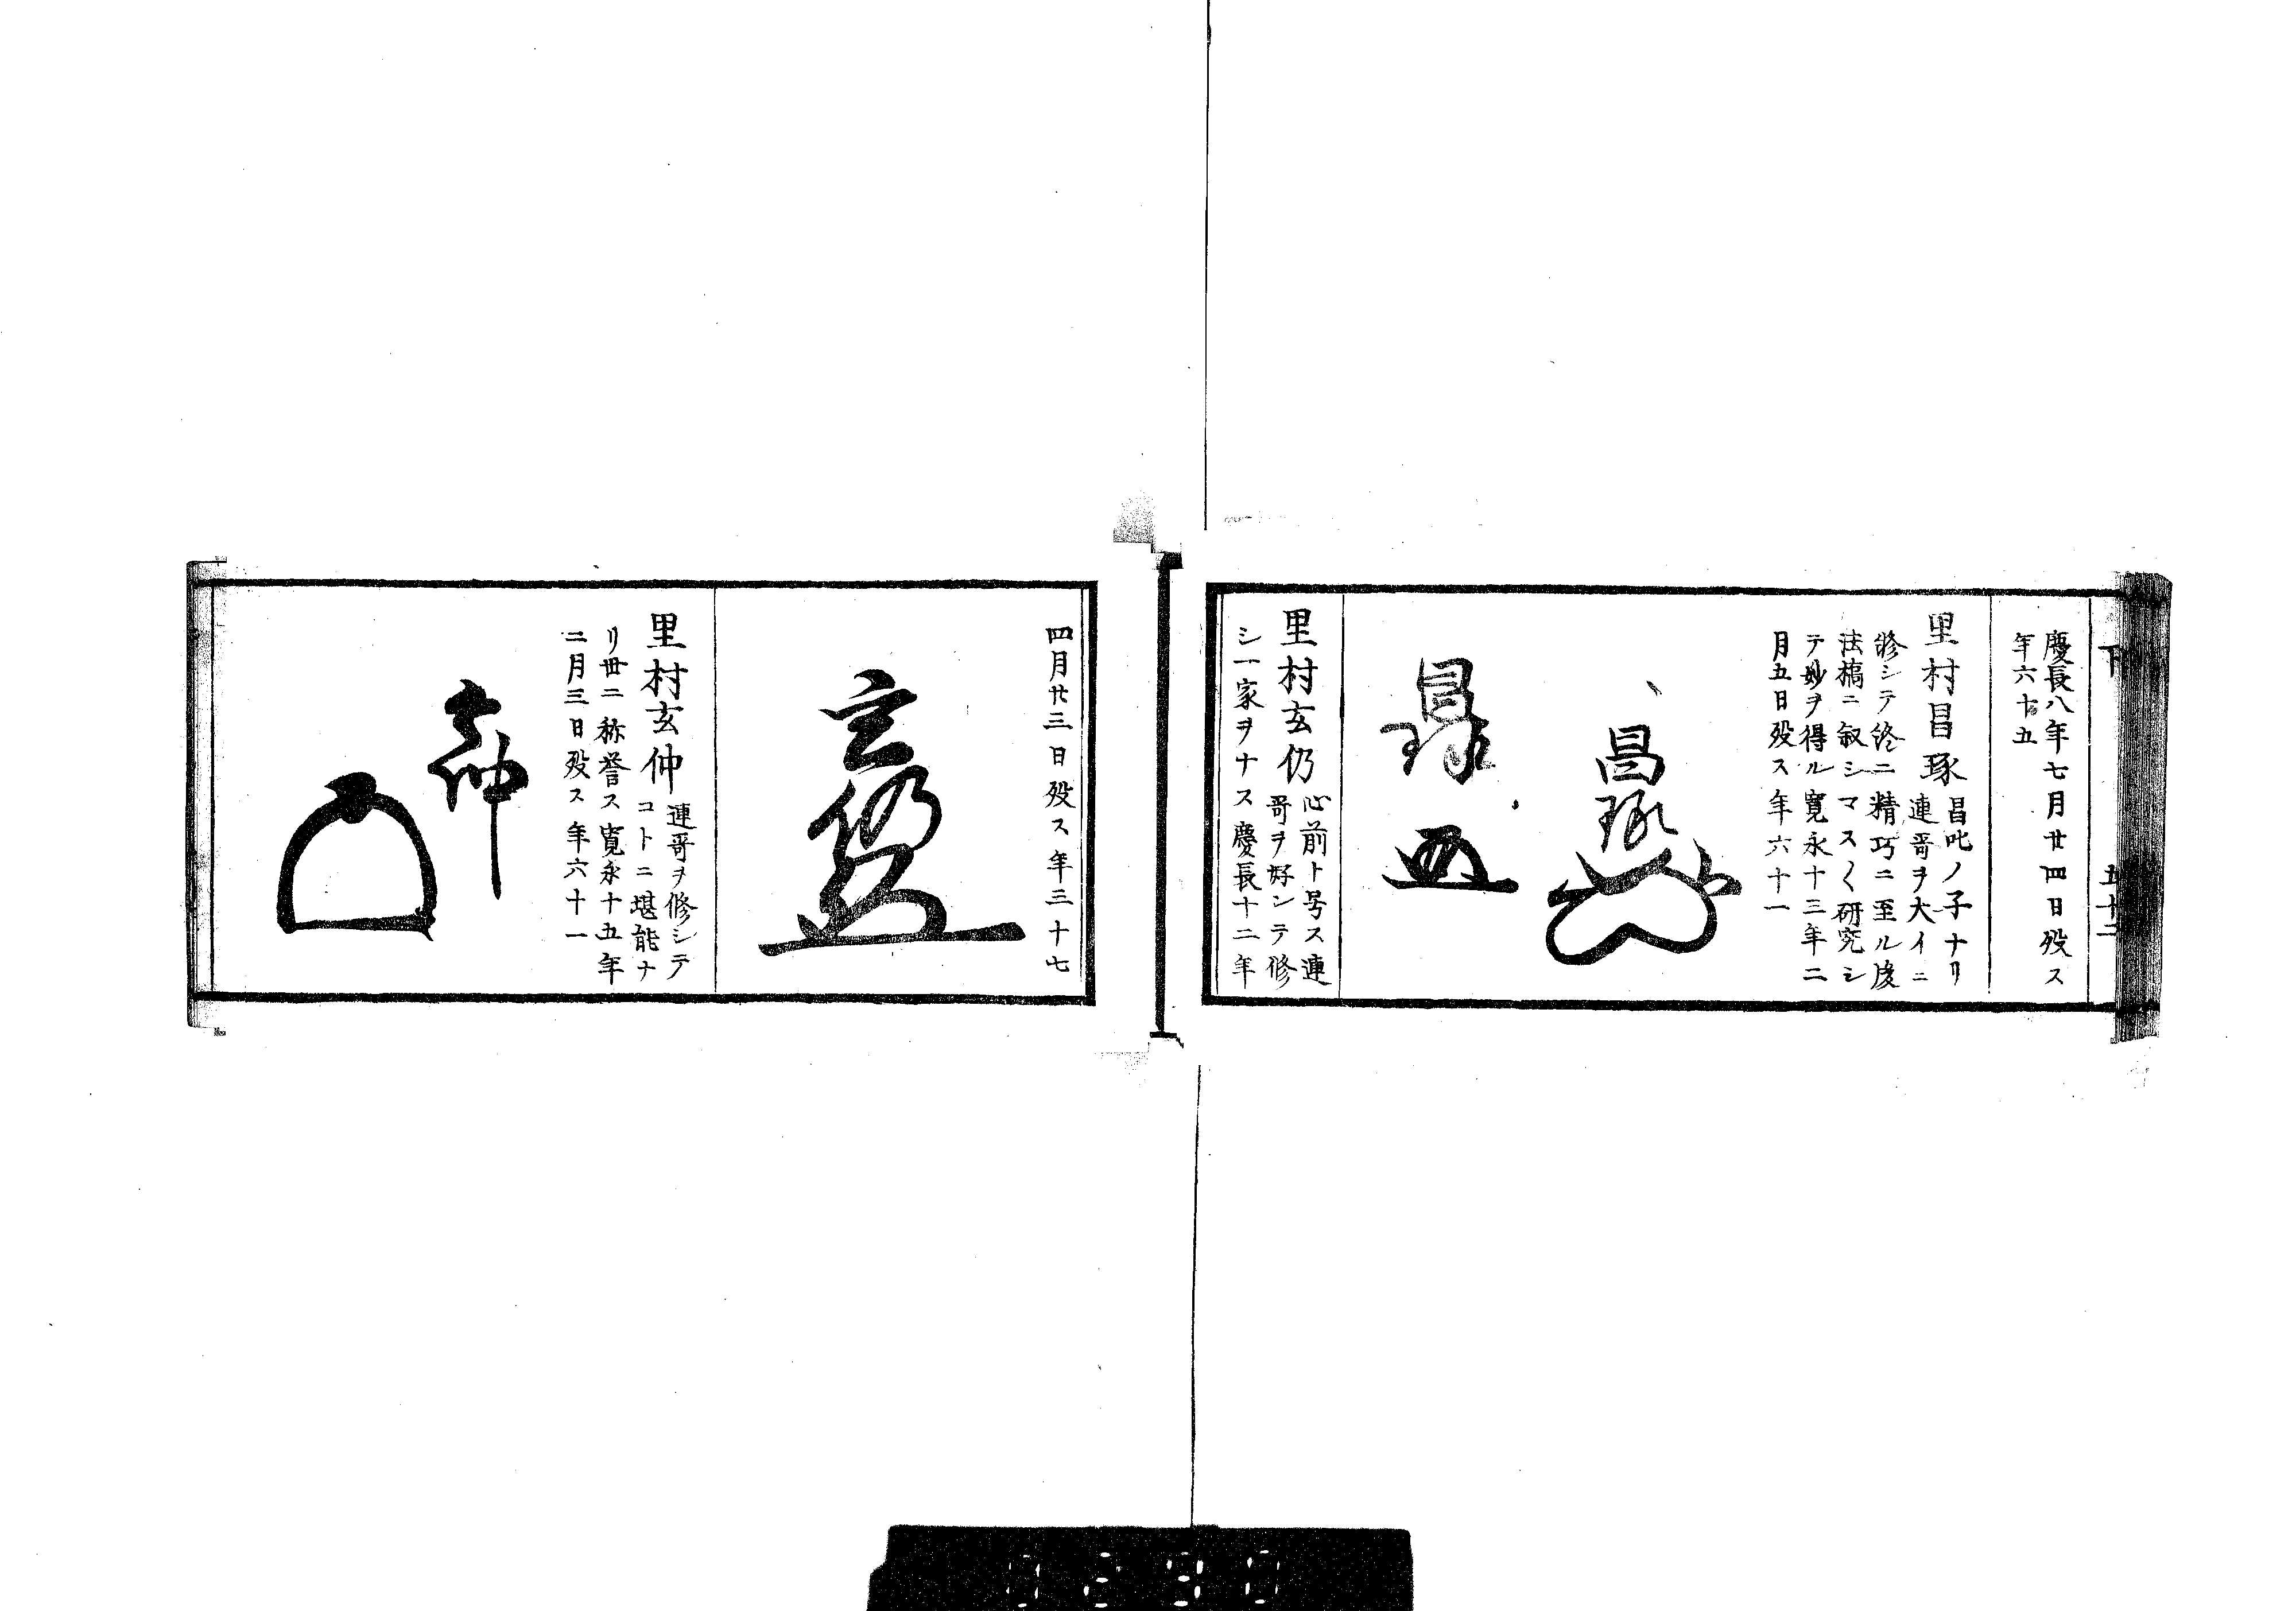 下
五十二
慶長八年七月廿四日歿ス
年六十五
里村昌琢
昌叱ノ子ナリ
連哥ヲ大イニ
修シテ終ニ精巧ニ至ル後
法橋ニ叙シマス〱研究シ
テ妙ヲ得ル寛永十三年二
月五日歿ス年六十一
昌琢
昌琢
里村玄仍
心前ト号ス連
哥ヲ好ンテ修
シ一家ヲナス慶長十二年
四月廿三日歿ス年三十七
玄仍
里村玄仲
連哥ヲ修シテ
コトニ堪能ナ
リ世ニ称誉ス寛永十五年
二月三日歿ス年六十一
玄仲